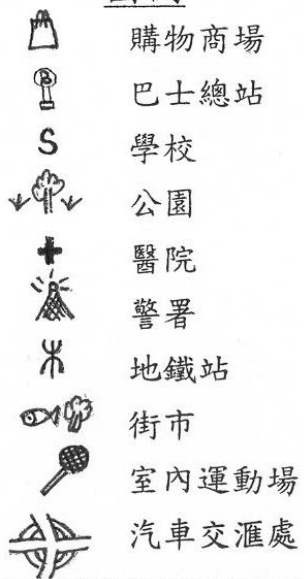 購物商場
B 巴士總站
S 學校
公園
醫院
警署
地鐵站
街市
室內運動場
汽車交滙處